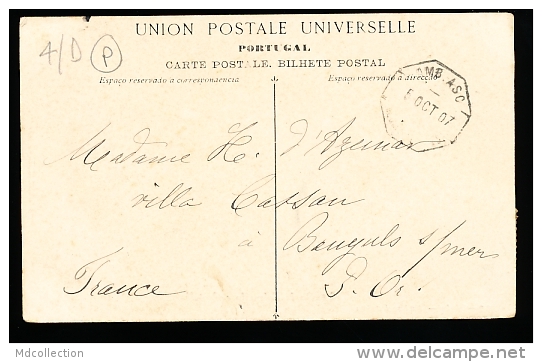 UNION POSTALE UNIVERSELLE
PORTUGAL
CARTE POSTALE. BILHETE POSTAL
4/D P
Espaço reservado á correspondencia
Espaço reservado á direcção
AMB. ASC
5 OCT 07
Madame H. d'Azemar
villa Cassan
à Banyuls s/mer
France P. Or.
Mdcollection
delcampe.net